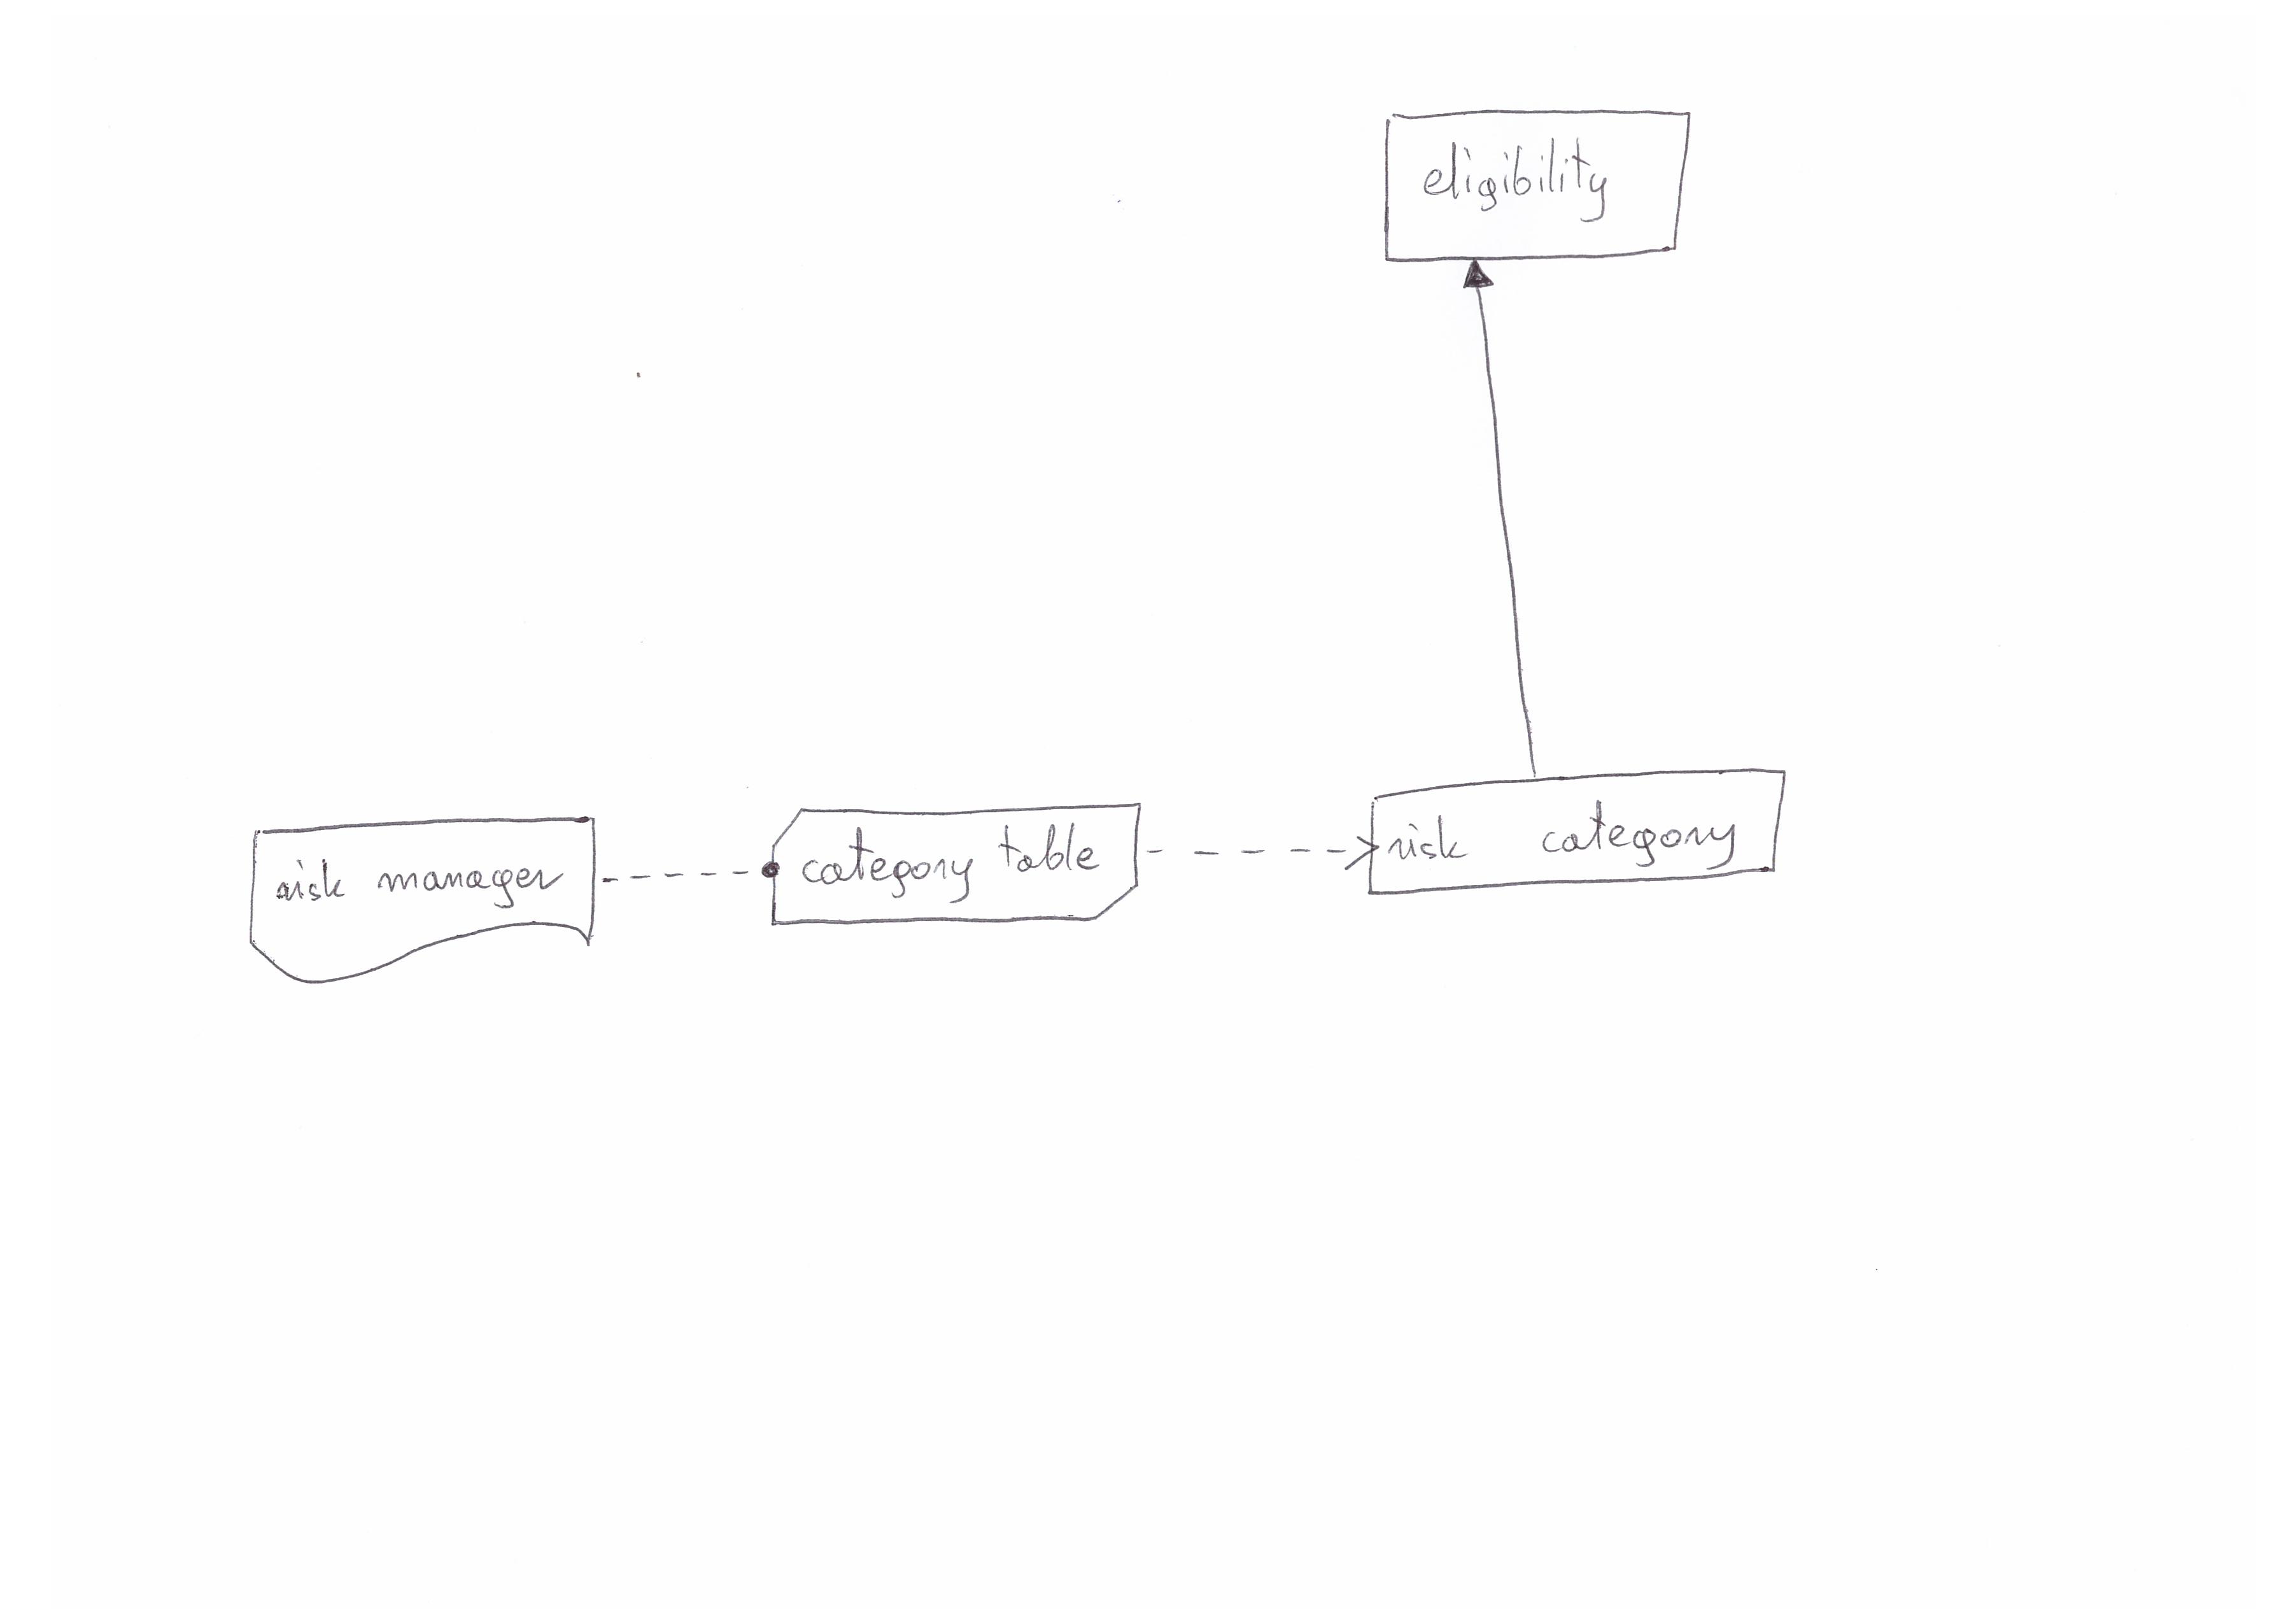 eligibility
risk manager
category table
risk category